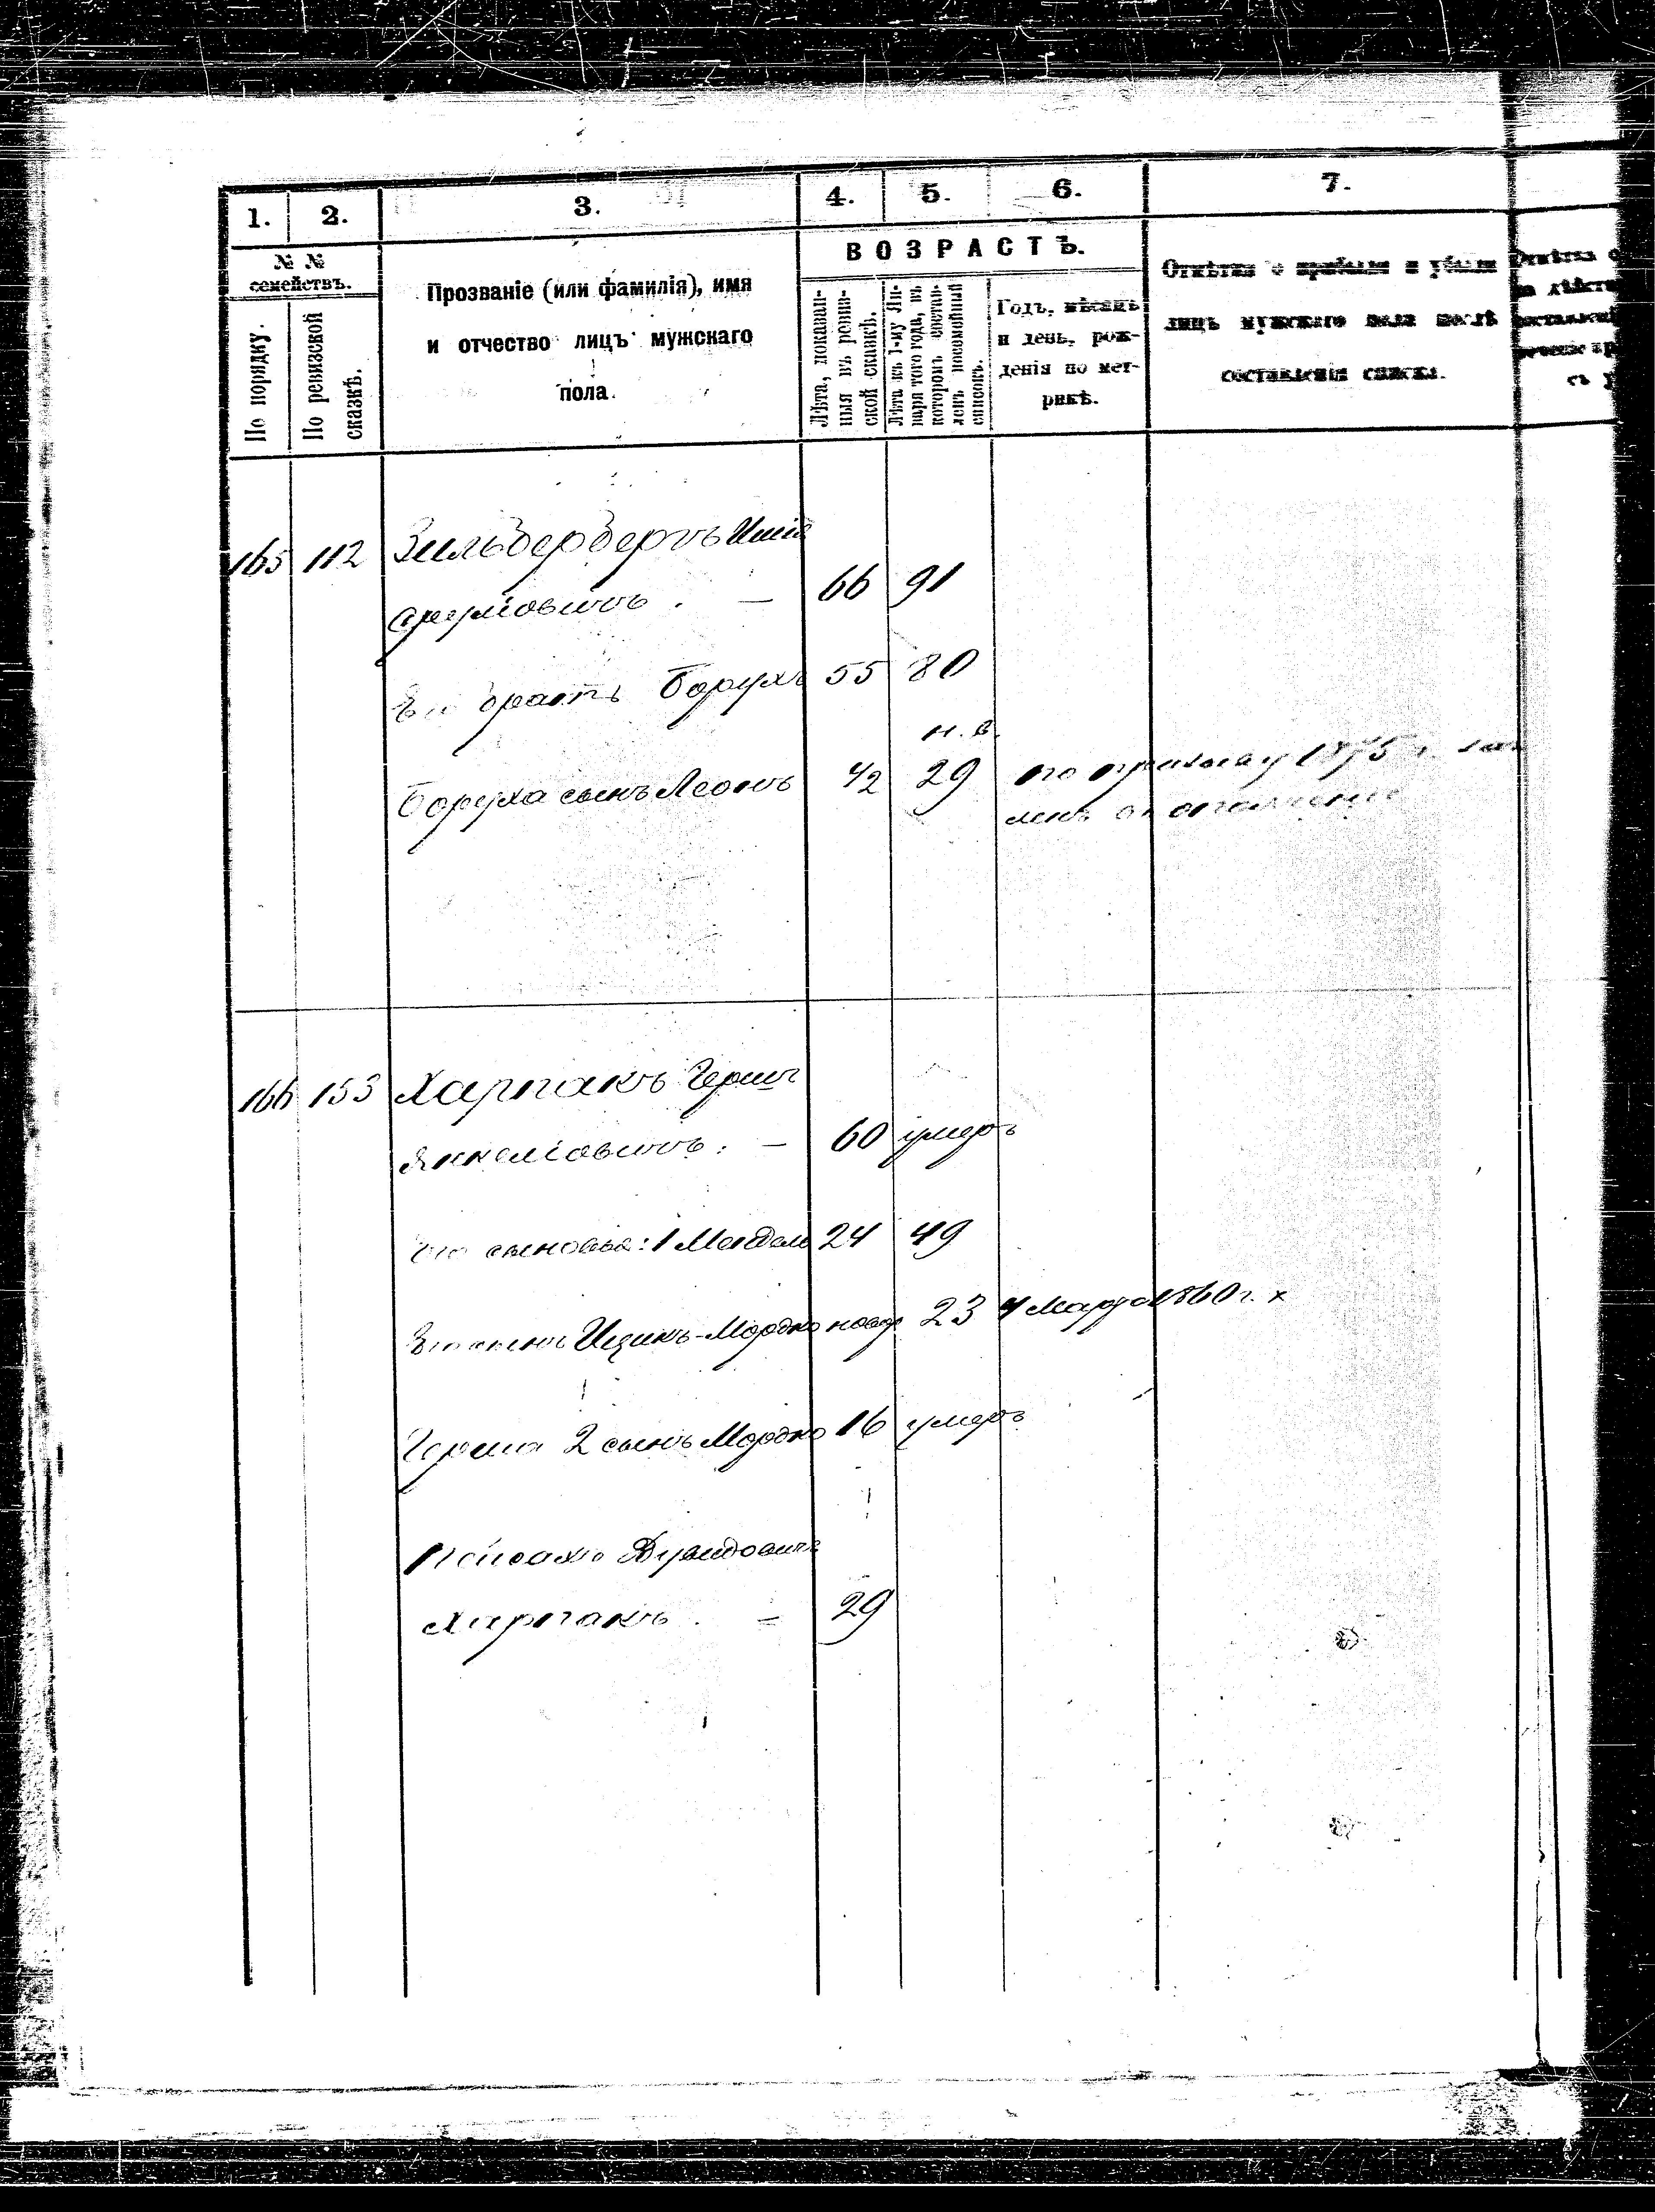 1. 2. 3. 4. 5. 6. 7.
№ №
семействъ.
По порядку.
По ревизской
сказкѣ.
Прозваніе (или фамилія), имя
и отчество лицъ мужскаго
пола.
ВОЗРАСТЪ.
Лѣта, показан-
ныя въ ревиз-
ской сказкѣ.
Лѣта къ 1-му Ян-
варя того года, въ
которомъ состав-
ленъ посемейный
списокъ.
Годъ, мѣсяцъ
и день, рож-
денія по мет-
рикѣ.
Отмѣтка о прибыли и убыли
лицъ мужскаго пола послѣ
составленія списка.
165 112 Зильберберъ
66 91
Его братъ Борухъ 55 80
н. в.
Боруха сынъ Леонъ 4/2 29 по призыву 1875 г.
166 153 Харпакъ Гершъ
Янкеліовичъ. — 60 умеръ
Его сыновья: 1 Мендель 24 49
Его сынъ Ицикъ-Мордко новор 23 4 Марта 1860 г. х
Герша 2 сынъ Мордко 16 умеръ
Пейсахъ Дувидовичъ
Харпакъ. — 29